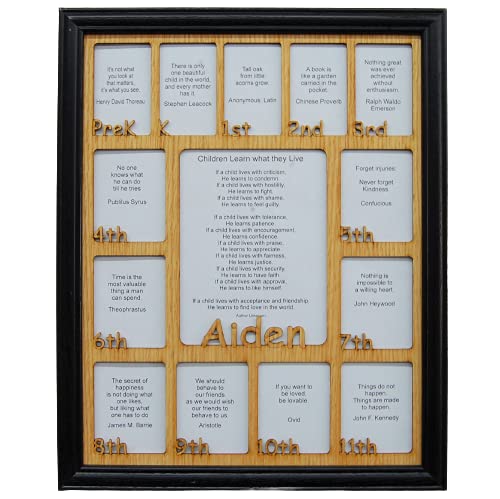 It's not what
you look at
that matters,
it's what you see.
Henry David Thoreau
PreK
There is only
one beautiful
child in the world,
and every mother
has it.
Stephen Leacock
K
Tall oak
from little
acorns grow.
Anonymous, Latin
1st
A book is
like a garden
carried in the
pocket.
Chinese Proverb
2nd
Nothing great
was ever
achieved
without
enthusiasm.
Ralph Waldo
Emerson
3rd
No one
knows what
he can do
till he tries
Publilius Syrus
4th
Children Learn what they Live
If a child lives with criticism,
He learns to condemn
If a child lives with hostility,
He learns to fight.
If a child lives with shame,
He learns to feel guilty.
If a child lives with tolerance,
He learns patience
If a child lives with encouragement,
He learns confidence.
If a child lives with praise,
He learns to appreciate
If a child lives with fairness,
He learns justice.
If a child lives with security,
He learns to have faith
If a child lives with approval,
He learns to like himself.
If a child lives with acceptance and friendship,
He learns to find love in the world
Author Unknown
Aiden
Forget injuries:
Never forget
Kindness
Confucious
5th
Time is the
most valuable
thing a man
can spend.
Theophrastus
6th
Nothing is
impossible to
a willing heart.
John Heywood
7th
The secret of
happiness
is not doing what
one likes,
but liking what
one has to do
James M. Barrie
8th
We should
behave to
our friends
as we would wish
our friends to
behave to us
Aristotle
9th
If you want to
be loved
be lovable
Ovid
10th
Things do not
happen.
Things are made
to happen.
John F. Kennedy
11th